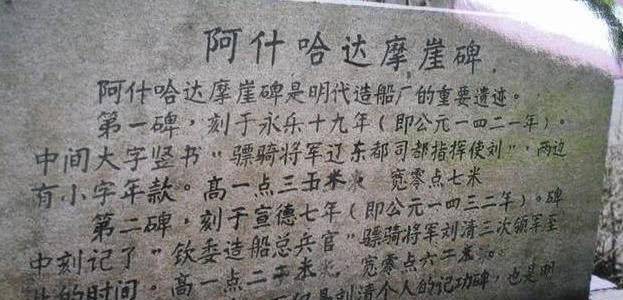 阿什哈达摩崖碑
阿什哈达摩崖碑是明代造船厂的重要遗迹。
第一碑，刻于永乐十九年（即公元一四二一年）。
中间大字竖书“骠骑将军辽东都司都指挥使刘”，两边
有小字年款。高一点三五米 宽零点七米
第二碑，刻于宣德七年（即公元一四三二年）。碑
中刻记了“钦委造船总兵官”骠骑将军刘清三次领军至
的时间。高一点二 米 宽零点六 米。
是刘清个人的记功碑，也是明